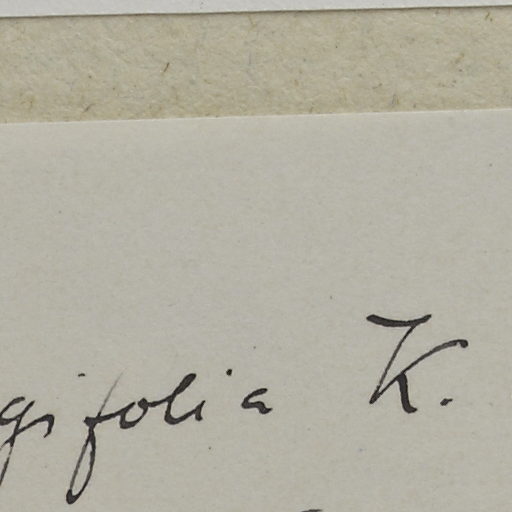 gifolia K.